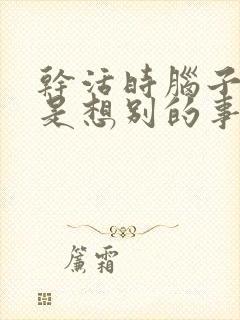 幹活時腦子
是想別的事
簾霜